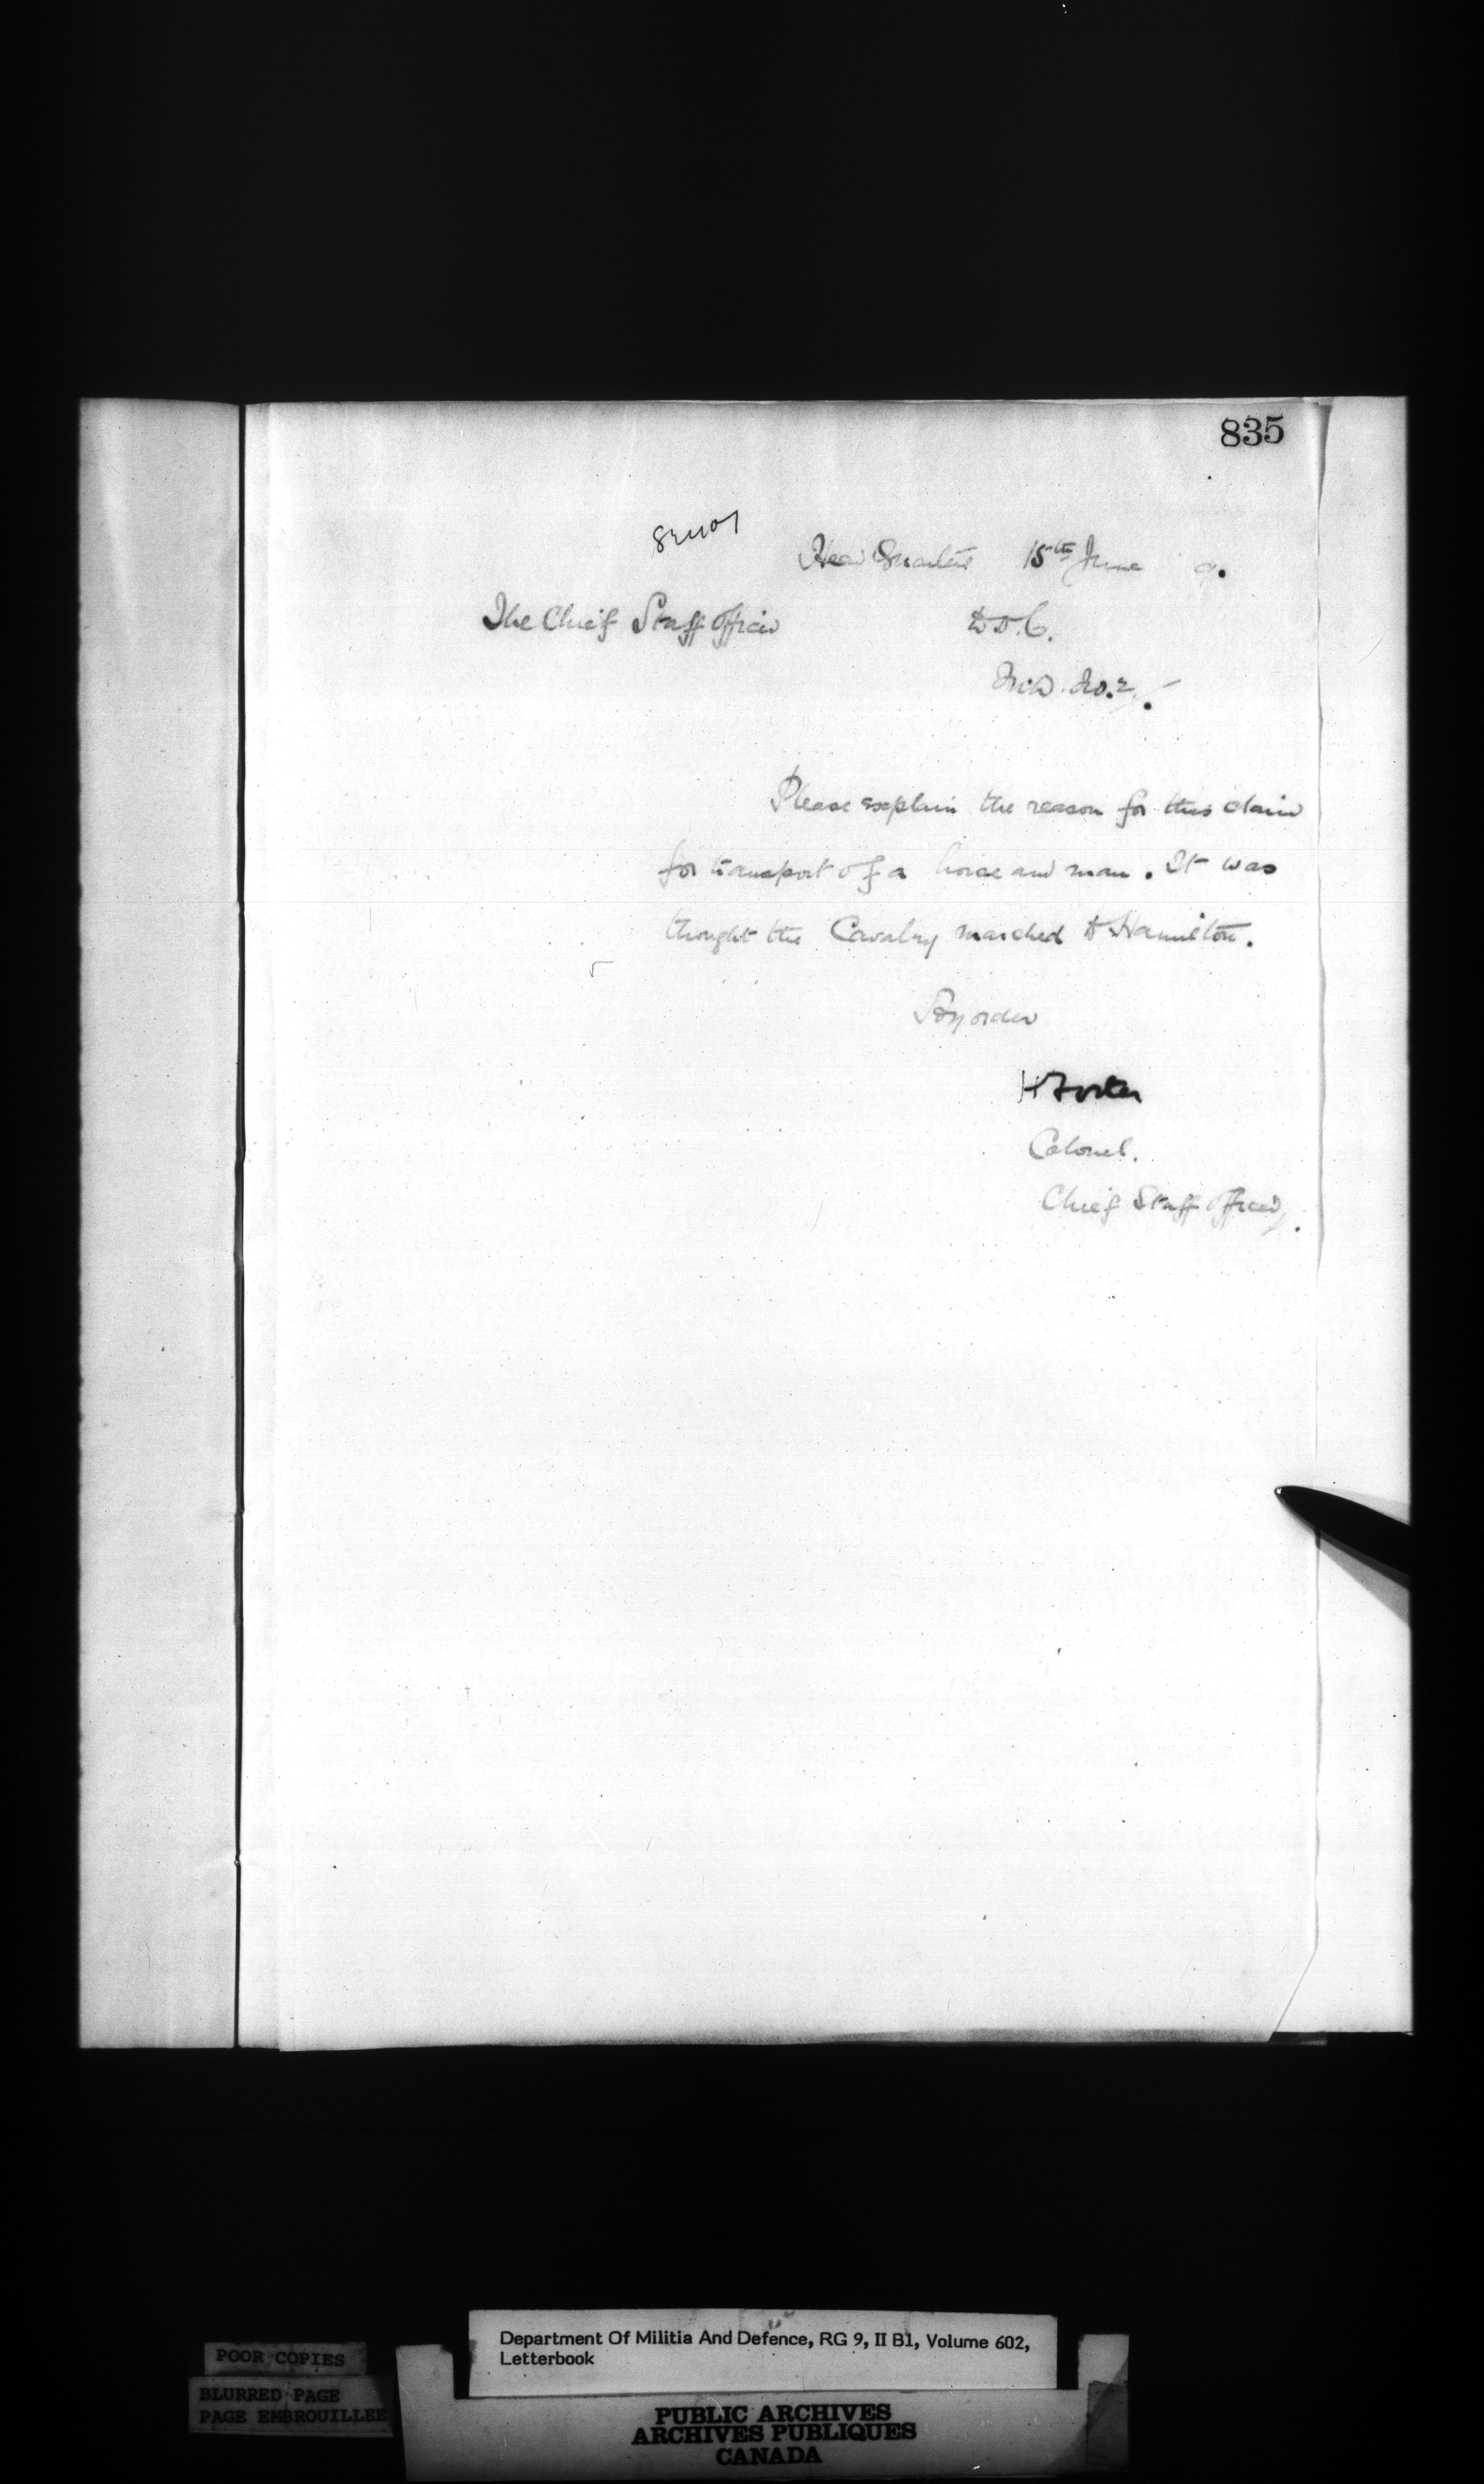 835
Head Quarters 15th June
The Chief Staff Officer
Please explain the reason for this claim
for transport of a horse and man. It was
thought the Cavalry marched to Hamilton.
By order
H Foster
Colonel.
Chief Staff Officer.
Department Of Militia And Defence, RG 9, II B1, Volume 602,
Letterbook
POOR COPIES
BLURRED PAGE
PAGE EMBROUILLEE
PUBLIC ARCHIVES
ARCHIVES PUBLIQUES
CANADA